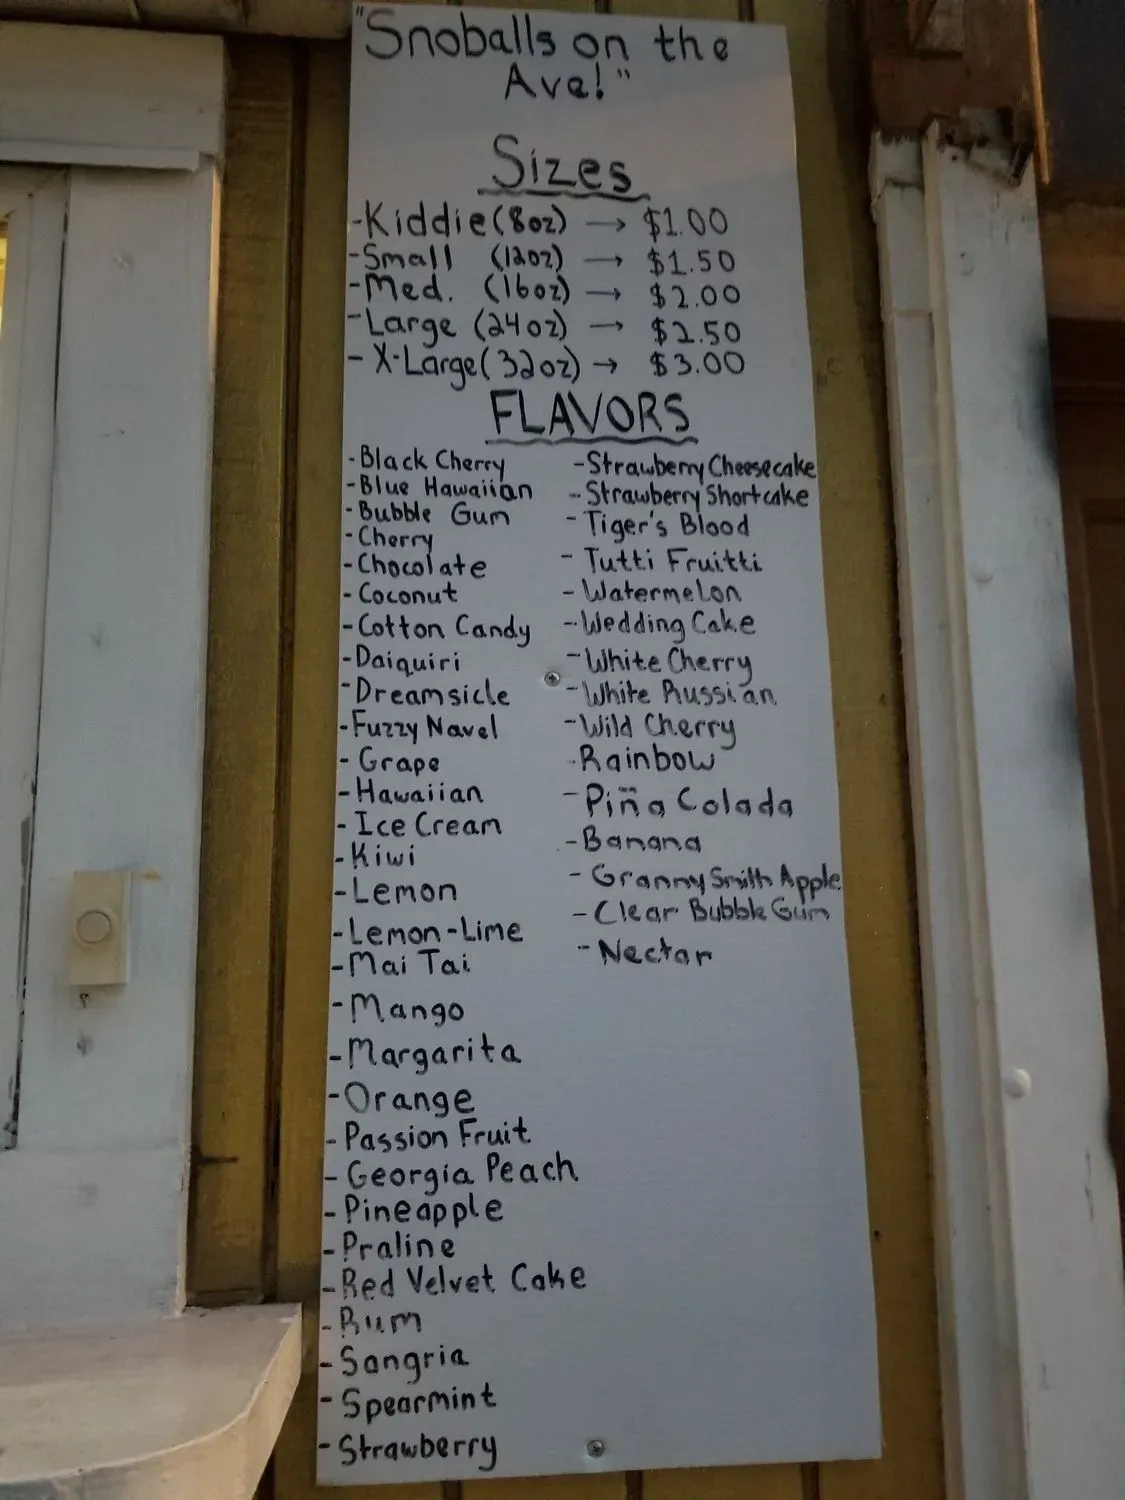 "Snoballs on the
Ave!"
Sizes
-Kiddie (8oz) → $1.00
-Small (12oz) → $1.50
-Med. (16oz) → $2.00
-Large (24oz) → $2.50
- X-Large (32oz) → $3.00
FLAVORS
-Black Cherry
-Blue Hawaiian
-Bubble Gum
-Cherry
-Chocolate
-Coconut
-Cotton Candy
-Daiquiri
-Dreamsicle
-Fuzzy Navel
-Grape
-Hawaiian
-Ice Cream
-Kiwi
-Lemon
-Lemon-Lime
-Mai Tai
-Mango
-Margarita
-Orange
-Passion Fruit
-Georgia Peach
-Pineapple
-Praline
-Red Velvet Cake
-Rum
-Sangria
-Spearmint
-Strawberry
-Strawberry Cheesecake
-Strawberry Shortcake
-Tiger's Blood
-Tutti Fruitti
-Watermelon
-Wedding Cake
-White Cherry
-White Russian
-Wild Cherry
-Rainbow
-Piña Colada
-Banana
-Granny Smith Apple
-Clear Bubble Gum
-Nectar